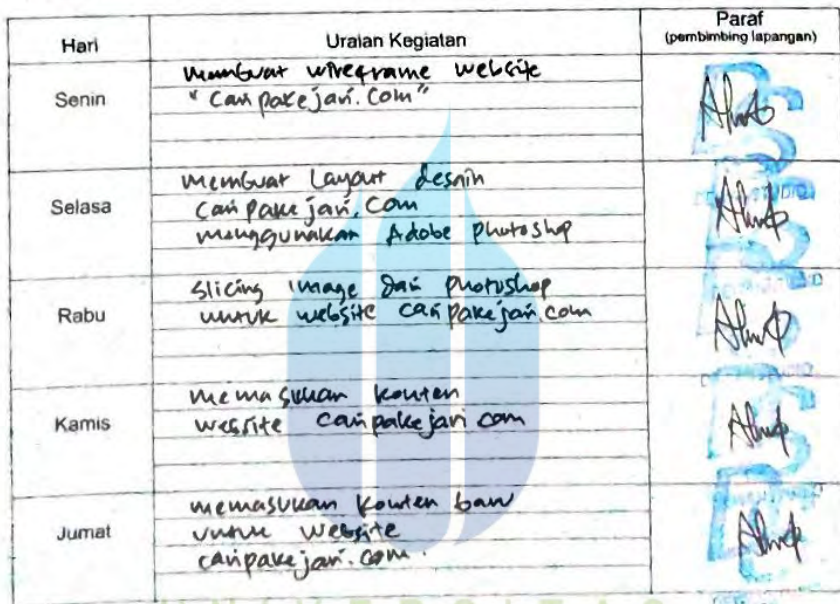 Hari Uraian Kegiatan Paraf
(pembimbing lapangan)
Senin
membuat wireframe website
"caripakejari.com"
Selasa
membuat layout desain
caripakejari.com
menggunakan Adobe photoshop
Rabu
slicing image dari photoshop
untuk website caripakejari.com
Kamis
memasukan konten
website caripakejari com
Jumat
memasukan konten baru
untuk website
caripakejari.com.